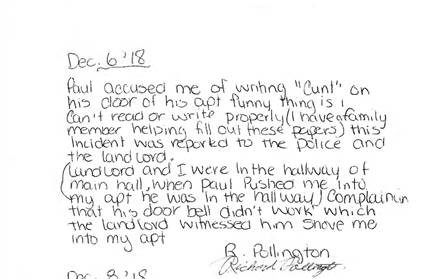 Dec. 6 '18
Paul accused me of writing "Cunt" on
his door of his apt funny thing is i
can't read or write properly (I have a family
member helping fill out these papers) this
incident was reported to the police and
the landlord.
(Landlord and I were in the hallway of
main hall, when Paul Pushed me into
my apt he was in the hallway) Complainin
that his door bell didn't work which
the landlord witnessed him shove me
into my apt
R. Pollington
Richard Pollington
Dec. 8 '18